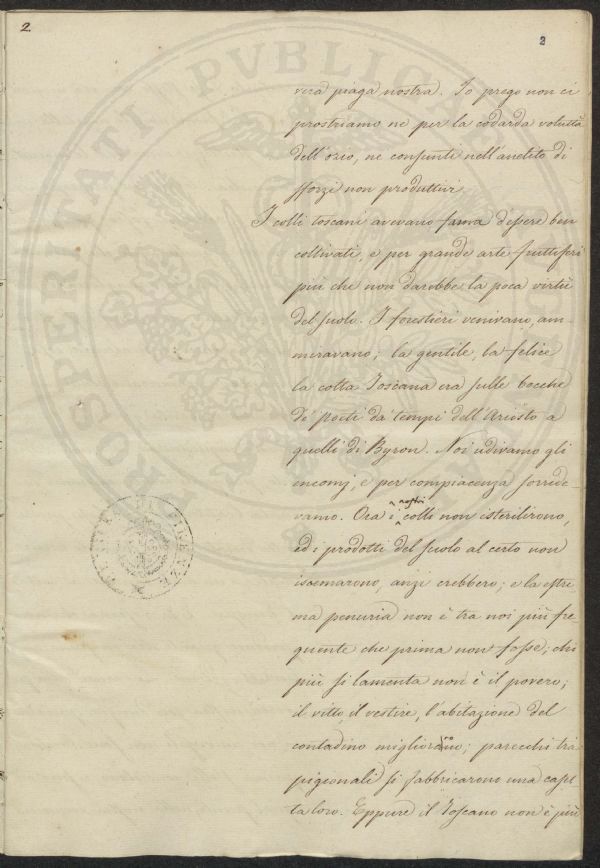 2.
2
vera piaga nostra. Io prego non ci
prostriamo nè per la codarda voluttà
dell'ozio, ne consunti nell'anelito di
sforzi non produttivi.
I colli toscani avevano fama d'essere ben
coltivati, e per grande arte fruttiferi
più che non darebbe la poca virtù
del suolo. I forestieri venivano, am-
miravano; la gentile, la felice
la colta Toscana era sulle bocche
di poeti da' tempi dell'Ariosto a
quelli di Byron. Noi udivamo gli
encomj, e per compiacenza sorride-
vamo. Ora i nostri colli non isterilirono,
ed i prodotti del suolo al certo non
iscemarono, anzi crebbero; e la estre
ma penuria non è tra noi più fre
quente che prima non fosse; chi
più si lamenta non è il povero;
il vitto, il vestire, l'abitazione del
contadino migliorarono; parecchi tra
pigionali si fabbricarono una caset-
ta loro. Eppure il Toscano non è più
PROSPERITATI PVBLICAE